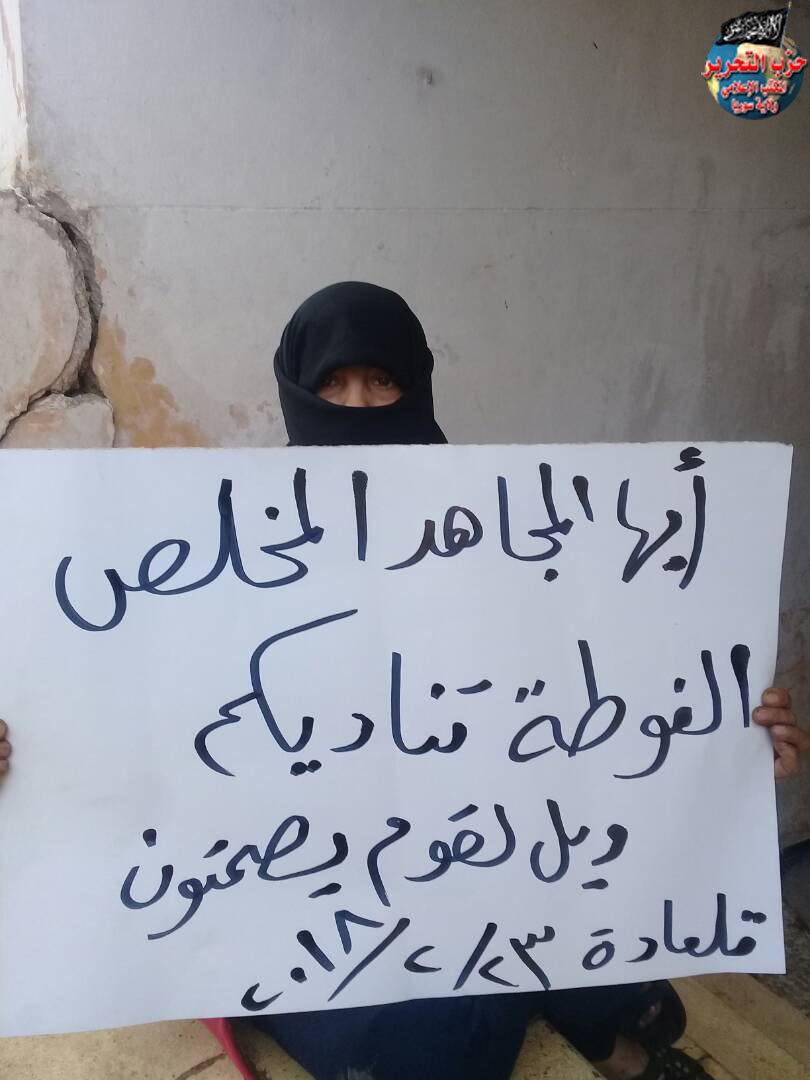 حزب التحرير
المكتب الإعلامي
ولاية سوريا
أيها المجاهد المخلص
الغوطة تناديكم
ويل لقوم يصمتون
قلعادة ٢٣/٢/٢٠١٨